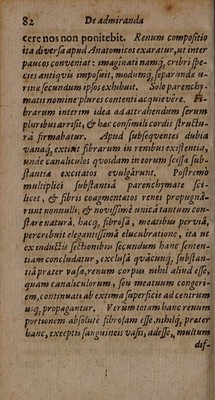 82 De admiranda
cere nos non pœnitebit. Renum compositio
ita diversa apud Anatomicos exaratur, ut inter
paucos conveniat: imaginati namq́, cribri spe-
cies antiquis imposuit, modumq́, separandæ u-
rinæ secundum ipsos exhibuit. Solo parenchy-
matis nomine plures contenti acquievêre. Fi-
brarum interim idea ad attrahendum serum
pluribus arrisit, & hæc consimili cordis structu-
râ firmabatur. Apud subsequentes dubia
vanaq́, extitit fibrarum in renibus existentia,
unde canaliculos quosdam in eorum scissa sub-
stantia excitatos evulgârunt. Postremò
multiplici substantiâ parenchymate sci-
licet, & fibris coagmentatos renes propugnâ-
runt nonnulli; & novissimè unicâ tantum con-
stare naturâ, hacq́, fibrosâ, meatibus perviâ,
percrebruit elegantissimâ elucubratione, ita ut
ex inductis sectionibus secundum hanc senten-
tiam concludatur, exclusâ quâcunq́, substan-
tiâ præter vasa, renum corpus nihil aliud esse,
quam canaliculorum, seu meatuum congeri-
em, continuati ab extima superficie ad centrum
usq́, propagantur. Verùm totam hanc renum
portionem absolutè fibrosam esse, nihilq́, præter
hanc, exceptis sanguineis vasis, adesse, multum
dif-